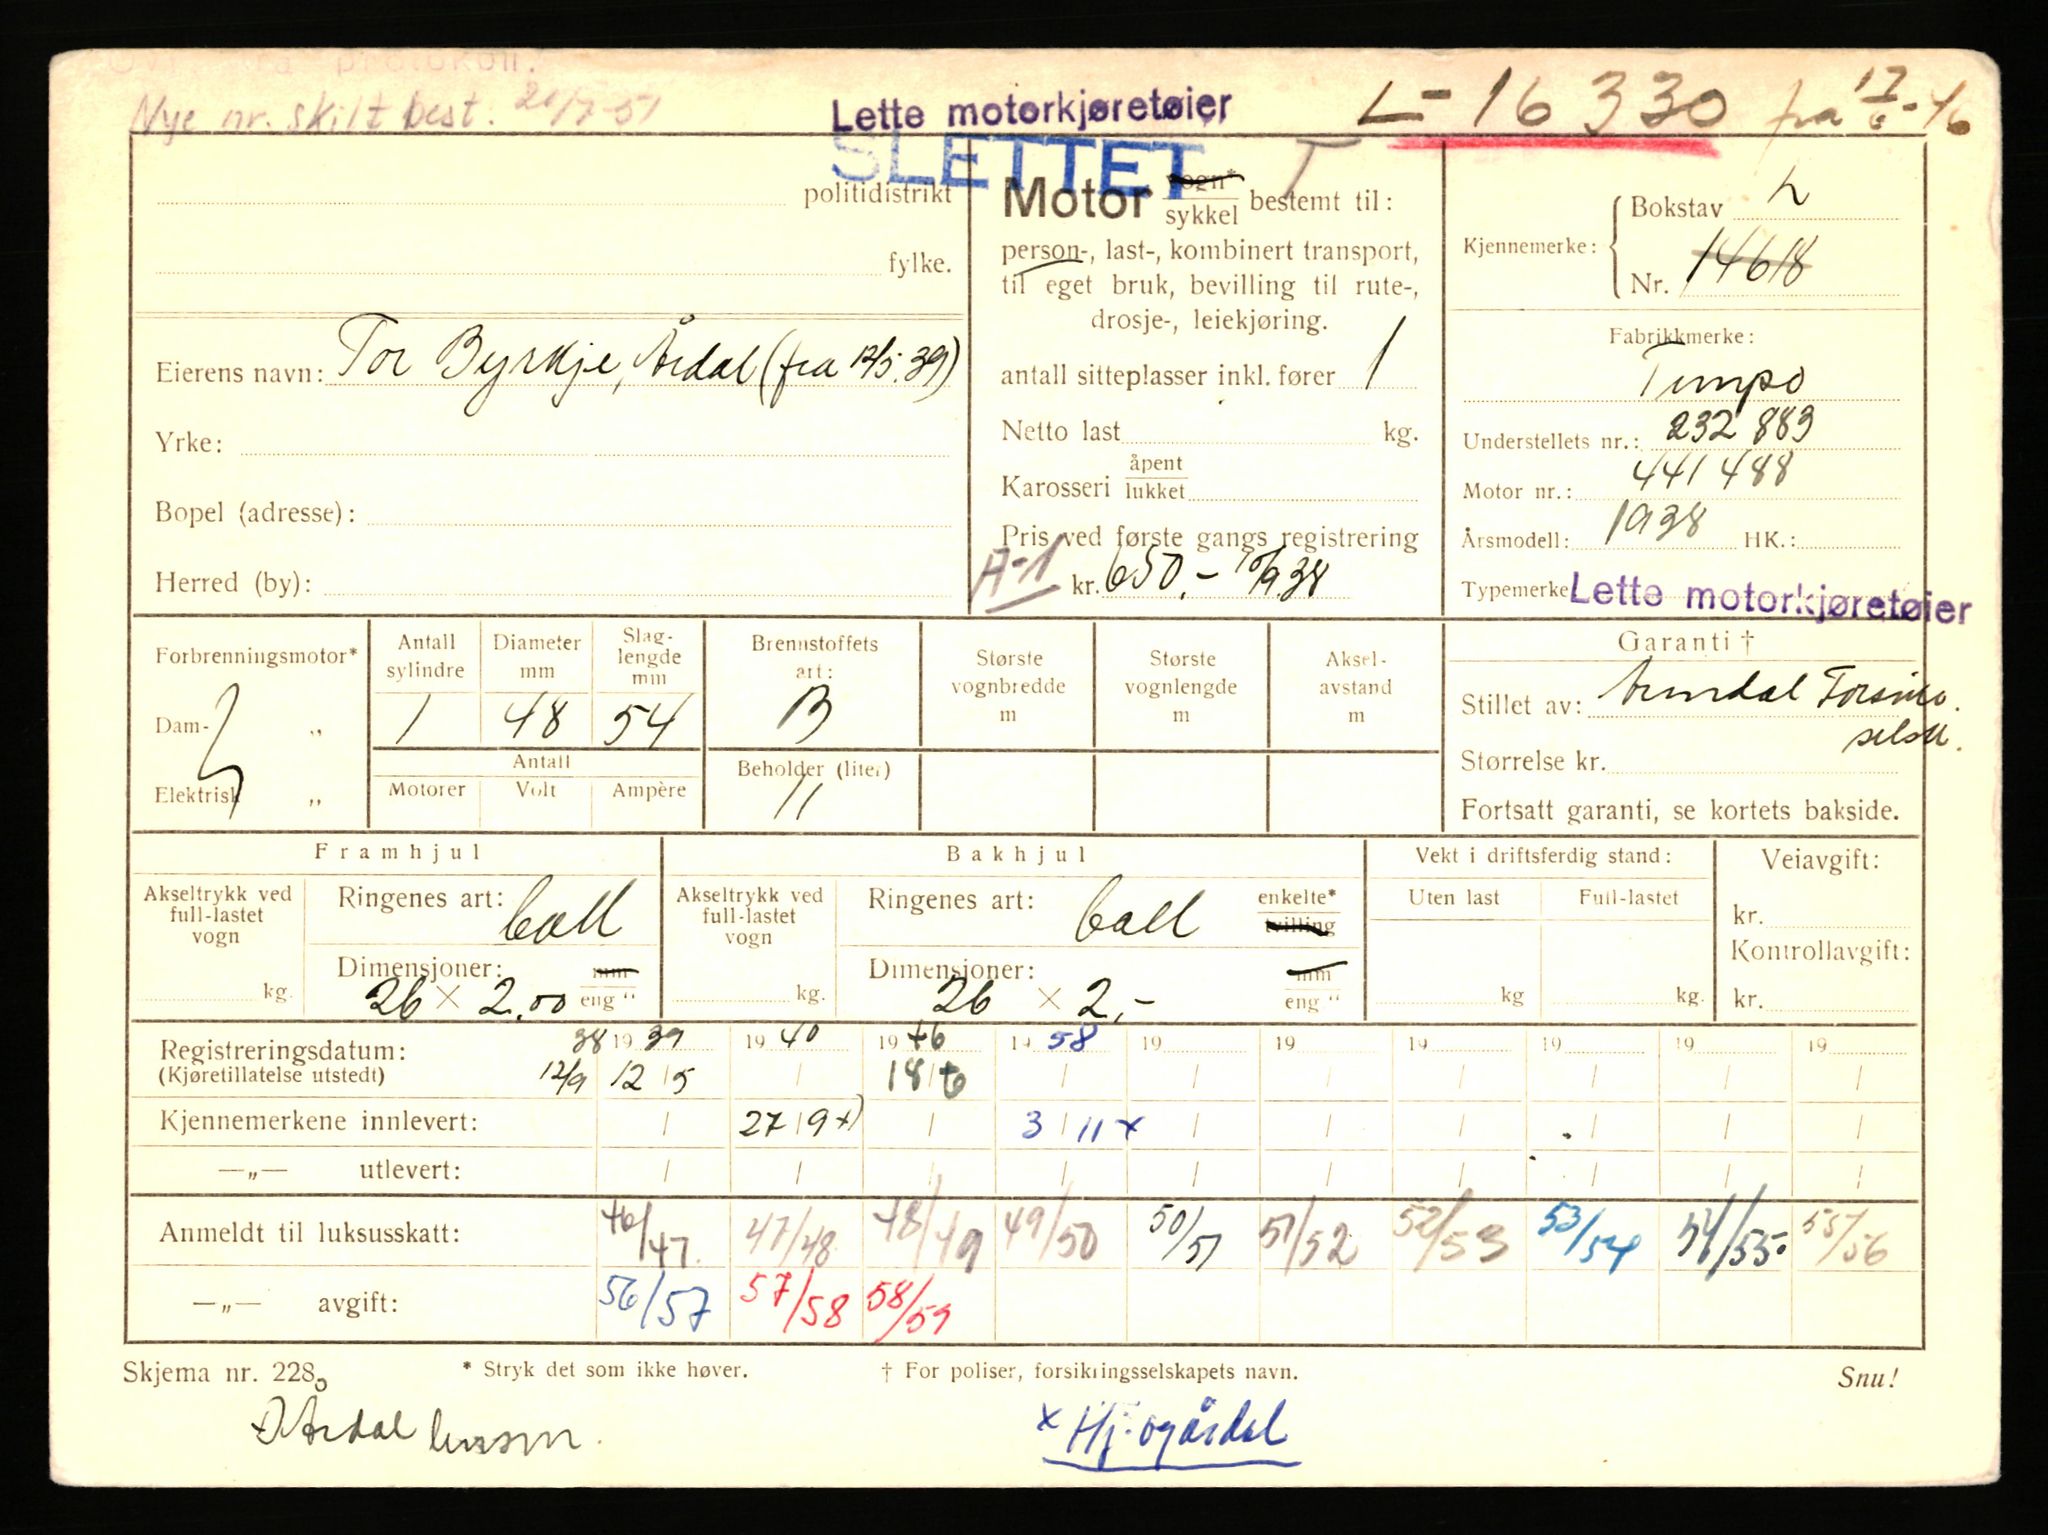 Nye nr. skilt best. 20/7-51
Lette motorkjøretøier
L-16330 fra 17/6-46
SLETTET
T
politidistrikt
fylke.
Eierens navn: Tor Byrkje, Årdal (fra 12/5.39)
Yrke:
Bopel (adresse):
Herred (by):
Motor vogn*
sykkel bestemt til:
person-, last-, kombinert transport,
til eget bruk, bevilling til rute-,
drosje-, leiekjøring.
antall sitteplasser inkl. fører 1
Netto last kg.
Karosseri åpent
lukket
Pris ved første gangs registrering
A-1 kr. 650.- 10/9.38
Kjennemerke: Bokstav L
Nr. 14618
Fabrikkmerke:
Tempo
Understellets nr.: 232 883
Motor nr.: 441 488
Årsmodell: 1938 HK.:
Typemerke Lette motorkjøretøier
Forbrenningsmotor*
Dam- „
Elektrisk „
Antall sylindre 1
Diameter mm 48
Slag-lengde mm 54
Antall
Motorer Volt Ampère
Brennstoffets art: B
Beholder (liter) 11
Største vognbredde m
Største vognlengde m
Aksel-avstand m
Garanti †
Stillet av: Arendal
Størrelse kr.
Fortsatt garanti, se kortets bakside.
Framhjul
Akseltrykk ved full-lastet vogn kg.
Ringenes art: Ball
Dimensjoner: 26 × 2.00 mm eng “
Bakhjul
Akseltrykk ved full-lastet vogn kg.
Ringenes art: Ball enkelte* tvilling
Dimensjoner: 26 × 2,- mm eng “
Vekt i driftsferdig stand:
Uten last Full-lastet
kg kg.
Veiavgift:
kr.
Kontrollavgift:
kr.
Registreringsdatum: 38 19 39 19 40 19 46 19 58 19 19 19 19 19 19
(Kjøretillatelse utstedt) 12/9 12/5 / 18/6 / / / / / / /
Kjennemerkene innlevert: / 27/9 +) / 3/11 x / / / / / /
—„— utlevert: / / / / / / / / / /
Anmeldt til luksusskatt: 46/47. 47/48 48/49 49/50 50/51 51/52 52/53 53/54 54/55. 55/56
—„— avgift: 56/57 57/58 58/59
Skjema nr. 228
* Stryk det som ikke høver.
† For poliser, forsikringsselskapets navn.
Snu!
Årdal
x Hj. og årdal